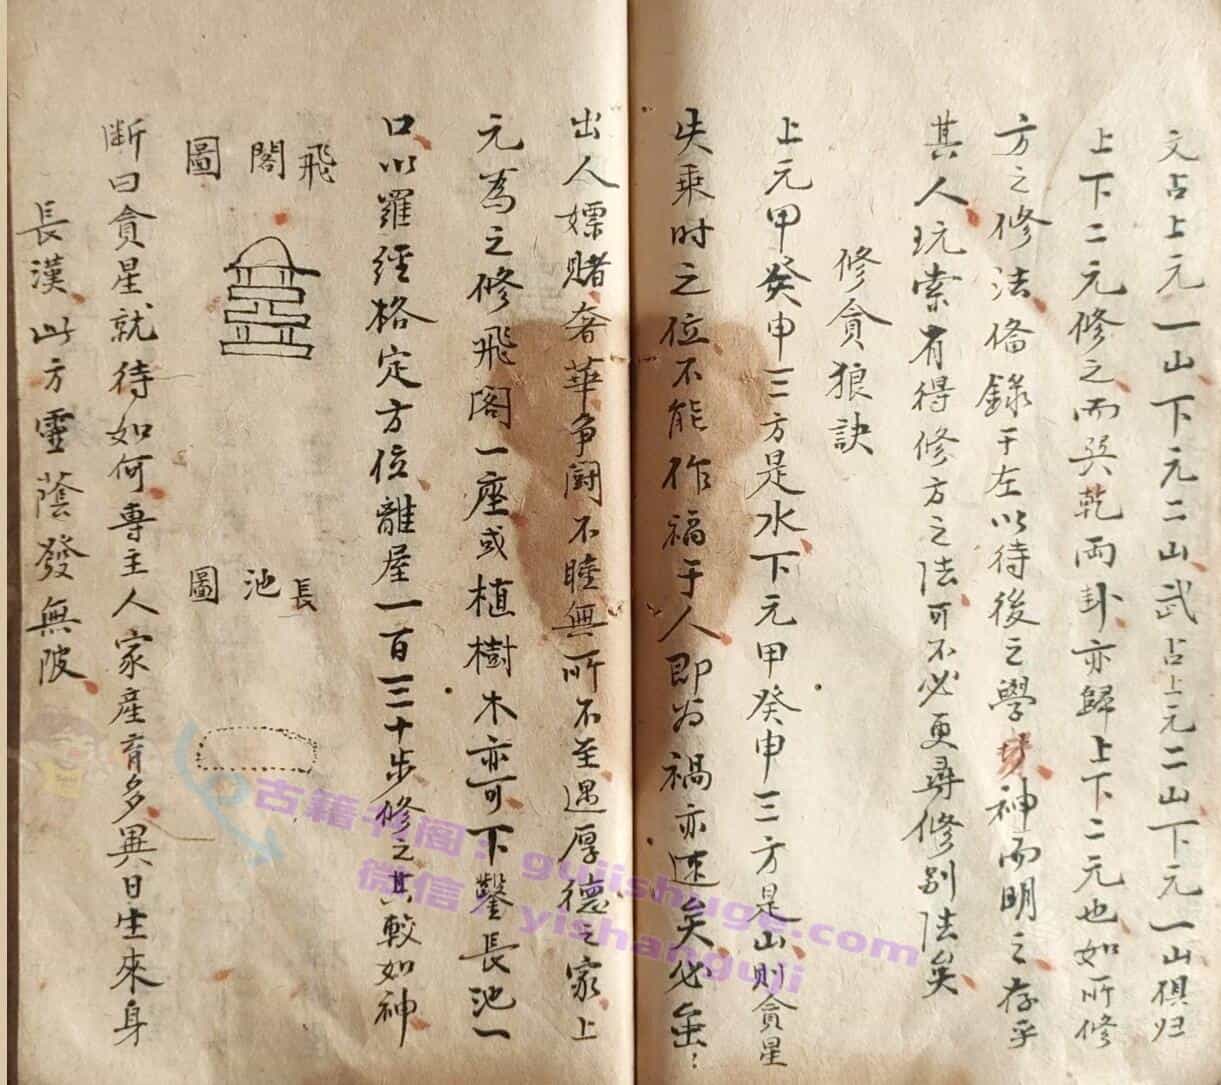 文占上元一山下元二山武占上元二山下元一山俱归
上下二元修之而巽乾两卦亦歸上下二元也如所修
方之修法俻錄于左以待後之學 神而明之存乎
其人玩索有得修方之法可不必更尋修别法矣
修貪狼訣
上元甲癸申三方是水下元甲癸申三方是山則貪星
失乘时之位不能作福于人即为禍亦速矣必
出人嫖赌奢華争鬪不睦無所不至遇厚德之家上
元為之修飛阁一座或植樹木亦可下鑿長池一
口以羅經格定方位離屋一百二十步修之其較如神
飛閣圖
長池圖
断曰貪星就待如何專主人家産育多異日生來身
長漢此方靈蔭發無陂
古籍书阁：gujishuge.com
微信：yishanguji